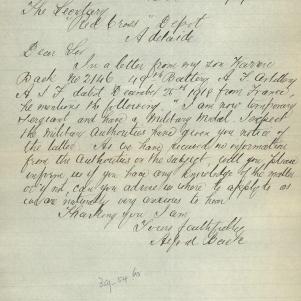 The Secretary
"Red Cross" Depot
Adelaide
Dear Sir
In a letter from my son
Back No 2146 Battery A. F. Artillery
A I F dated December 26th 1916 from France,
he mentions the following, "I am now temporary
Sergeant and have a Military Medal. I expect
the Military Authorities have given you notice of
the latter. As we have received no information
from the Authorities on the subject, will you please
inform us if you have any knowledge of the matter
or if not, can you advise us where to apply to as
we are naturally very anxious to know
Thanking you I am
Yours faithfully
Back